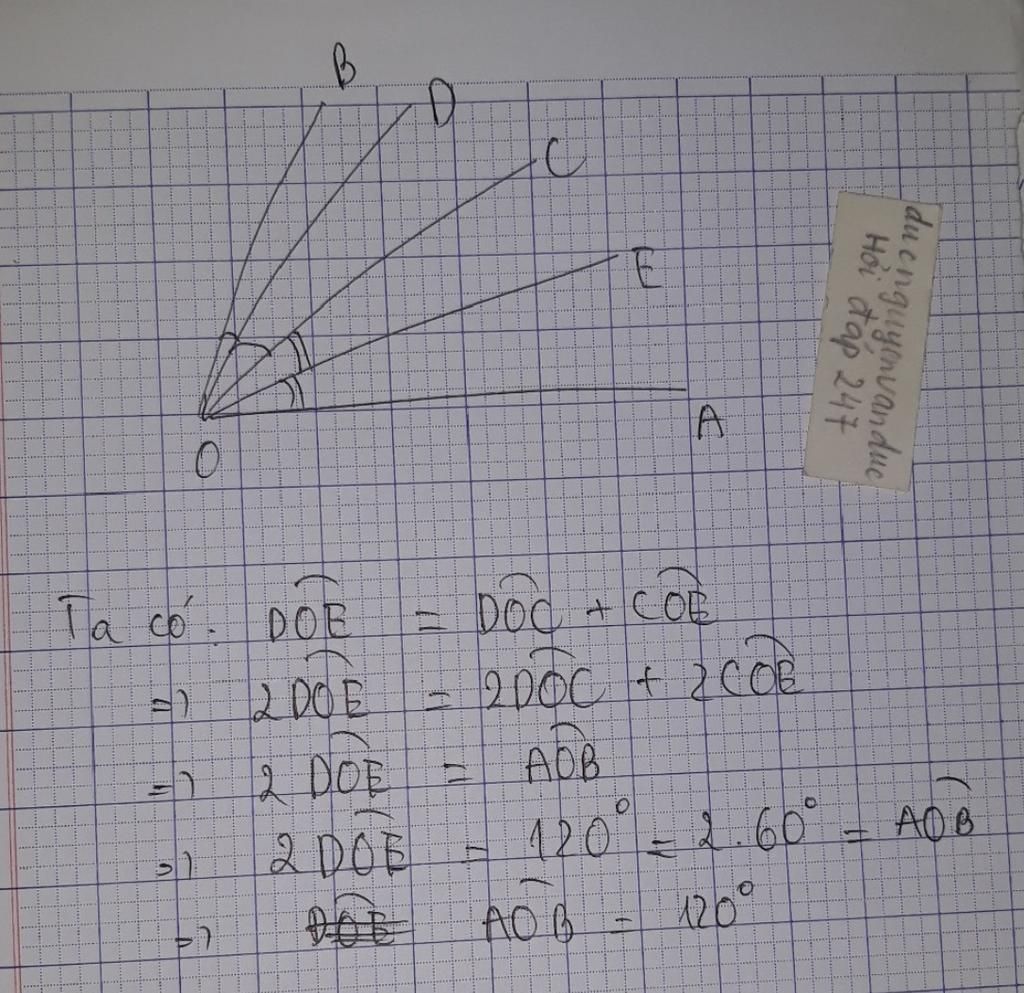 B
D
C
E
A
O
duenguyenvanduc
Hỏi đáp 247
Ta có: DOE = DOC + COE
=> 2DOE = 2DOC + 2COE
=> 2DOE = AOB
=> 2DOE = 120° = 2.60° = AOB
=> DOE AOB = 120°